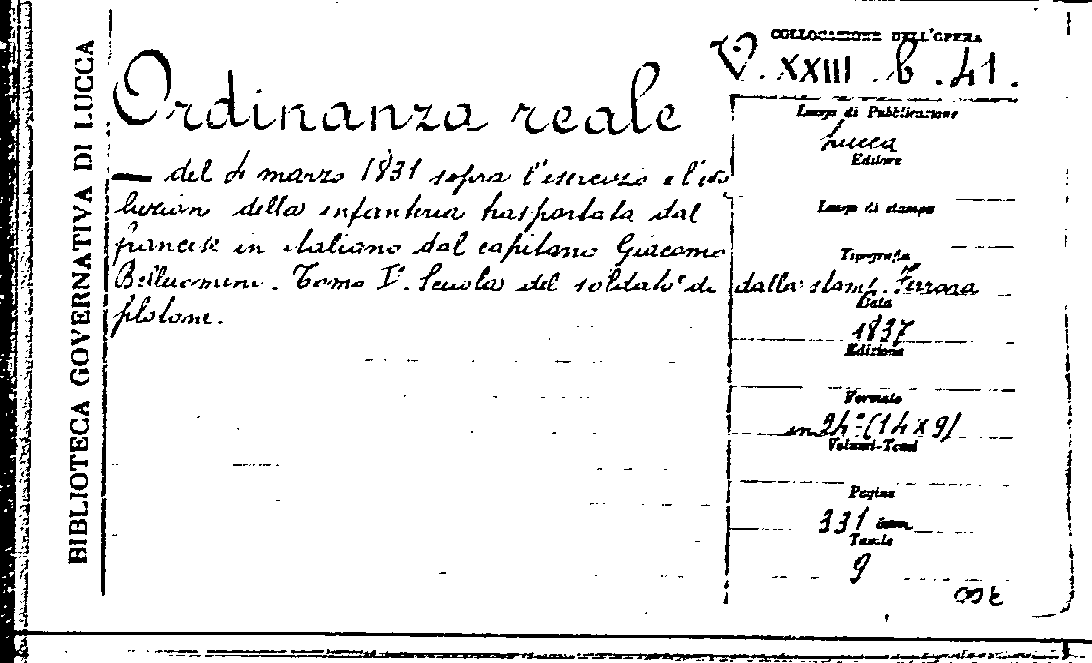 BIBLIOTECA GOVERNATIVA DI LUCCA
COLLOCAZIONE DELL'OPERA
V. XXIII . b . 41 .
Ordinanza reale
— del 4 marzo 1831 sopra l'esercizio e l'evo
luzioni della infanteria trasportata dal
francese in italiano dal capitano Giacomo
Belluomini. Tomo I° Scuola del soldato e di
plotone.
Luogo di Pubblicazione
Lucca
Editore
Luogo di stampa
Tipografia
dalla stamp. Ferrara
Data
1837
Edizione
Formato
in 24° (14 x 9)
Volumi-Tomi
Pagine
331 con
Tavole
9